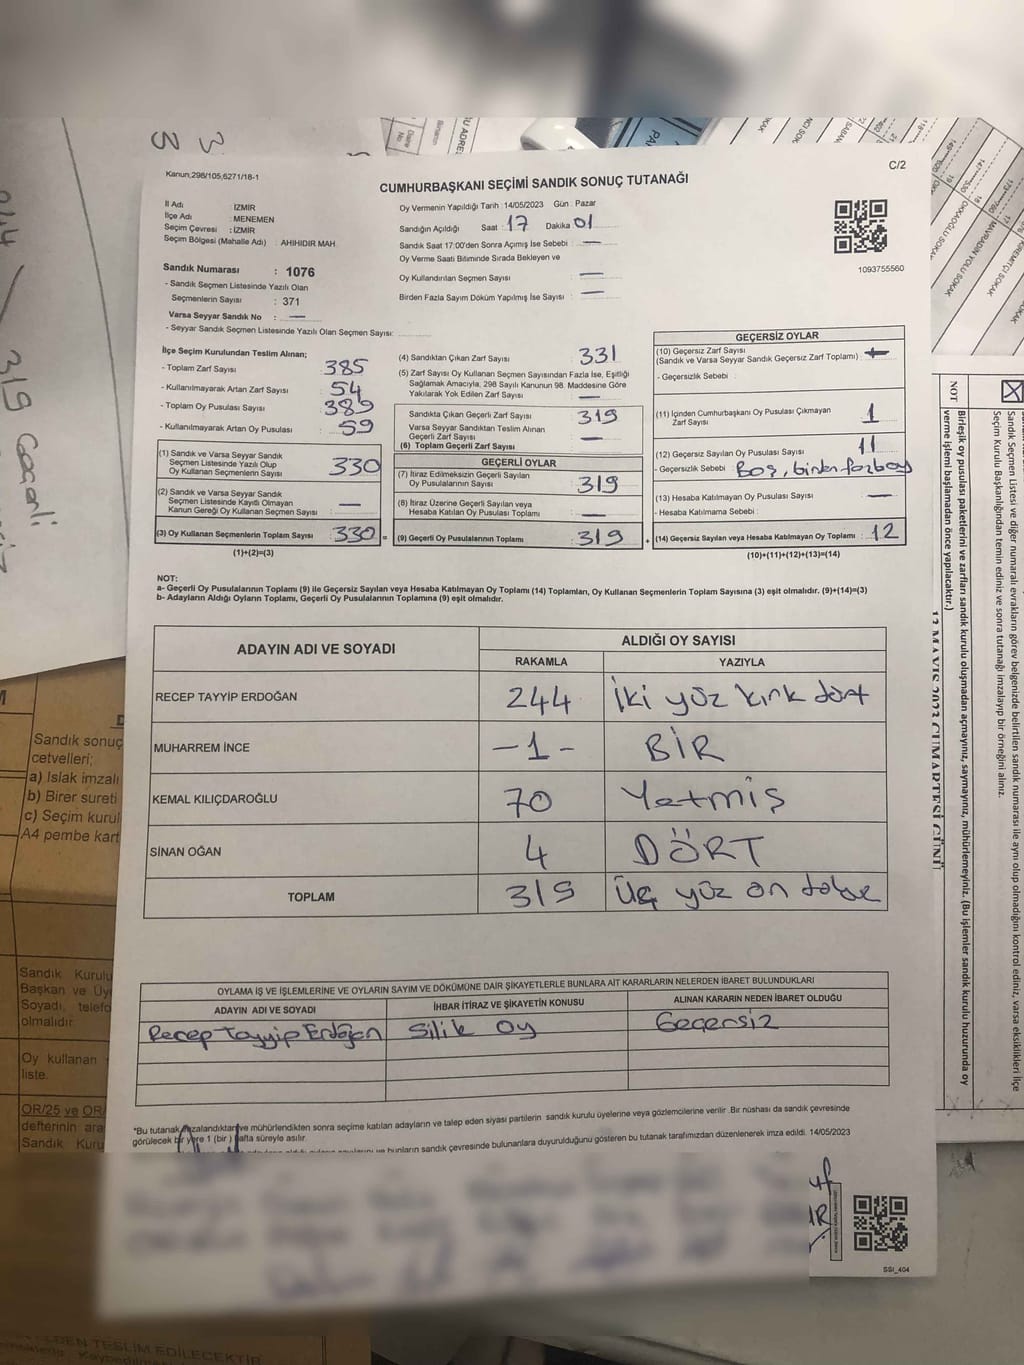 C/2
Kanun;298/105;6271/18-1
CUMHURBAŞKANI SEÇİMİ SANDIK SONUÇ TUTANAĞI
İl Adı : İZMİR
İlçe Adı : MENEMEN
Seçim Çevresi : İZMİR
Seçim Bölgesi (Mahalle Adı) : AHIHIDIR MAH.
Sandık Numarası : 1076
- Sandık Seçmen Listesinde Yazılı Olan
Seçmenlerin Sayısı : 371
Varsa Seyyar Sandık No : —
- Seyyar Sandık Seçmen Listesinde Yazılı Olan Seçmen Sayısı:
Oy Vermenin Yapıldığı Tarih : 14/05/2023 Gün : Pazar
Sandığın Açıldığı Saat : 17 Dakika 01
Sandık Saat 17:00'den Sonra Açımış İse Sebebi : —
Oy Verme Saati Bitiminde Sırada Bekleyen ve
Oy Kullandırılan Seçmen Sayısı : —
Birden Fazla Sayım Döküm Yapılmış İse Sayısı : —
1093755560
İlçe Seçim Kurulundan Teslim Alınan;
- Toplam Zarf Sayısı : 385
- Kullanılmayarak Artan Zarf Sayısı : 54
- Toplam Oy Pusulası Sayısı : 389
- Kullanılmayarak Artan Oy Pusulası : 59
(1) Sandık ve Varsa Seyyar Sandık
Seçmen Listesinde Yazılı Olup
Oy Kullanan Seçmenlerin Sayısı : 330
(2) Sandık ve Varsa Seyyar Sandık
Seçmen Listesinde Kayıtlı Olmayan
Kanun Gereği Oy Kullanan Seçmen Sayısı : —
(3) Oy Kullanan Seçmenlerin Toplam Sayısı : 330 =
(1)+(2)=(3)
(4) Sandıktan Çıkan Zarf Sayısı : 331
(5) Zarf Sayısı Oy Kullanan Seçmen Sayısından Fazla İse, Eşitliği
Sağlamak Amacıyla, 298 Sayılı Kanunun 98. Maddesine Göre
Yakılarak Yok Edilen Zarf Sayısı : —
Sandıkta Çıkan Geçerli Zarf Sayısı : 319
Varsa Seyyar Sandıktan Teslim Alınan
Geçerli Zarf Sayısı : —
(6) Toplam Geçerli Zarf Sayısı
GEÇERLİ OYLAR
(7) İtiraz Edilmeksizin Geçerli Sayılan
Oy Pusulalarının Sayısı : 319
(8) İtiraz Üzerine Geçerli Sayılan veya
Hesaba Katılan Oy Pusulası Toplamı : —
(9) Geçerli Oy Pusulalarının Toplamı : 319 +
GEÇERSİZ OYLAR
(10) Geçersiz Zarf Sayısı
(Sandık ve Varsa Seyyar Sandık Geçersiz Zarf Toplamı) :
- Geçersizlik Sebebi :
(11) İçinden Cumhurbaşkanı Oy Pusulası Çıkmayan
Zarf Sayısı : 1
(12) Geçersiz Sayılan Oy Pusulası Sayısı : 11
- Geçersizlik Sebebi : Boş, birden fazla oy
(13) Hesaba Katılmayan Oy Pusulası Sayısı : —
- Hesaba Katılmama Sebebi :
(14) Geçersiz Sayılan veya Hesaba Katılmayan Oy Toplamı : 12
(10)+(11)+(12)+(13)=(14)
NOT:
a- Geçerli Oy Pusulalarının Toplamı (9) ile Geçersiz Sayılan veya Hesaba Katılmayan Oy Toplamı (14) Toplamları, Oy Kullanan Seçmenlerin Toplam Sayısına (3) eşit olmalıdır. (9)+(14)=(3)
b- Adayların Aldığı Oyların Toplamı, Geçerli Oy Pusulalarının Toplamına (9) eşit olmalıdır.
ADAYIN ADI VE SOYADI ALDIĞI OY SAYISI
RAKAMLA YAZIYLA
RECEP TAYYİP ERDOĞAN 244 İki yüz kırk dört
MUHARREM İNCE -1- BİR
KEMAL KILIÇDAROĞLU 70 Yetmiş
SİNAN OĞAN 4 DÖRT
TOPLAM 319 Üç yüz on dokuz
OYLAMA İŞ VE İŞLEMLERİNE VE OYLARIN SAYIM VE DÖKÜMÜNE DAİR ŞİKAYETLERLE BUNLARA AİT KARARLARIN NELERDEN İBARET BULUNDUKLARI
ADAYIN ADI VE SOYADI İHBAR İTİRAZ VE ŞİKAYETİN KONUSU ALINAN KARARIN NEDEN İBARET OLDUĞU
Recep Tayyip Erdoğan Silik oy Geçersiz
*Bu tutanak imzalandıktan ve mühürlendikten sonra seçime katılan adayların ve talep eden siyasi partilerin sandık kurulu üyelerine veya gözlemcilerine verilir .Bir nüshası da sandık çevresinde
görülecek bir yere 1 (bir ) hafta süreyle asılır.
bunların sandık çevresinde bulunanlara duyurulduğunu gösteren bu tutanak tarafımızdan düzenlenerek imza edildi. 14/05/2023
SSI_404
319 Geçerli
Sandık sonuç
cetvelleri;
a) Islak imzalı
b) Birer sureti
c) Seçim kurul
A4 pembe kart
Sandık Kurulu
Başkan ve Üye
Soyadı, telefo
olmalıdır
Oy kullanan
liste.
OR/25 ve OR/
defterinin ara
Sandık Kuru
DEN TESLİM EDİLECEKTİR
Sandık Seçmen Listesi ve diğer numaralı evrakların görev belgenizde belirtilen sandık numarası ile aynı olup olmadığını kontrol ediniz, varsa eksiklikleri İlçe
Seçim Kurulu Başkanlığından temin ediniz ve sonra tutanağı imzalayıp bir örneğini alınız.
NOT
Birleşik oy pusulası paketlerini ve zarfları sandık kurulu oluşmadan açmayınız, saymayınız, mühürlemeyiniz. (Bu işlemler sandık kurulu huzurunda oy
verme işlemi başlamadan önce yapılacaktır.)
13 MAYIS 2023 CUMARTESİ GÜNÜ